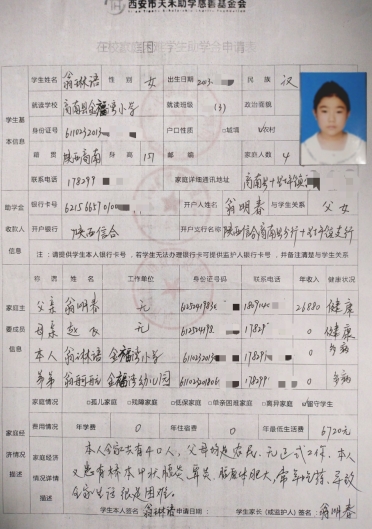 西安市天禾助学慈善基金会
在校家庭困难学生助学金申请表
学生基本信息
学生姓名 翁琳语 性别 女 出生日期 2013. 民族 汉
就读学校 商南县金福湾小学 就读班级 (3) 政治面貌
身份证号 6110232013 户口性质 □城镇 ☑农村
籍贯 陕西商南 身高 151 邮编 家庭人数 4
联系电话 178299 家庭详细通讯地址 商南县十里坪镇
助学金收款人信息
银行卡号 621566510100 开户人姓名 翁明春 与学生关系 父女
开户银行 陕西信合 开户支行名称 陕西信合商南县分行十里坪支行
注：请提供学生本人银行卡号，若学生无法办理银行卡可提供监护人银行卡号，并备注清楚与学生关系
家庭主要成员信息
称谓 姓名 工作单位 身份证号码 联系电话 年收入 健康状况
父亲 翁明春 无 26880 健康
母亲 无 17829 0 健康
本人 翁琳语 金福湾小学 6110232013 178299 0 多病
弟弟 金福湾幼儿园 178299 0 多病
家庭经济情况描述
家庭情况 □孤儿家庭 □残障家庭 □低保家庭 □单亲困难家庭 □离异家庭 ☑留守学生
费用情况 年学费 0 年住宿费 0 年最低生活费 6720元
家庭经济情况详情描述
本人全家共有4口人，父母均是农民，无正式工作，本人
又患有桥本甲状腺炎、鼻炎、腺样体肥大，常年吃药，导致
全家生活很是困难。
学生本人签名 翁琳语 学生家长（或监护人）签名： 翁明春